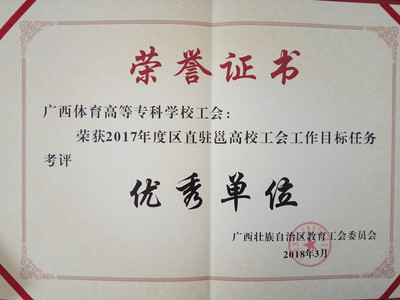 荣誉证书
广西体育高等专科学校工会：
荣获2017年度区直驻邕高校工会工作目标任务
考评
优秀单位
广西壮族自治区教育工会委员会
2018年3月